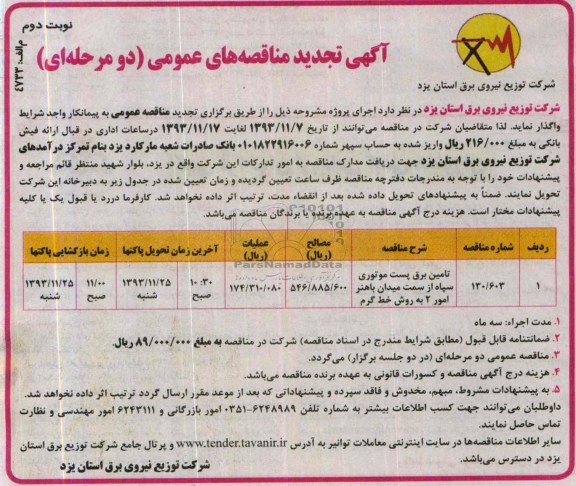 نوبت دوم
م‌الف: ۴۷۳۳
آگهی تجدید مناقصه‌های عمومی (دو مرحله‌ای)
شرکت توزیع نیروی برق استان یزد
شرکت توزیع نیروی برق استان یزد در نظر دارد اجرای پروژه مشروحه ذیل را از طریق برگزاری تجدید مناقصه عمومی به پیمانکار واجد شرایط
واگذار نماید. لذا متقاضیان شرکت در مناقصه می‌توانند از تاریخ ۱۳۹۳/۱۱/۷ لغایت ۱۳۹۳/۱۱/۱۷ درساعات اداری در قبال ارائه فیش
بانکی به مبلغ ۲۱۶/۰۰۰ ریال واریز شده به حساب سپهر شماره ۰۱۰۱۸۲۲۹۱۶۰۰۶ بانک صادرات شعبه مارکارد یزد بنام تمرکز درآمدهای
شرکت توزیع نیروی برق استان یزد جهت دریافت مدارک مناقصه به امور تدارکات این شرکت واقع در یزد، بلوار شهید منتظر قائم مراجعه و
پیشنهادات خود را با توجه به مندرجات دفترچه مناقصه ظرف ساعت تعیین گردیده و زمان تعیین شده در جدول زیر به دبیرخانه این شرکت
تحویل نمایند. ضمناً به پیشنهادهای تحویل داده شده بعد از انقضاء مدت، ترتیب اثر داده نخواهد شد. کارفرما دررد یا قبول یک یا کلیه
پیشنهادات مختار است. هزینه درج آگهی مناقصه به عهده برنده یا برندگان مناقصه می‌باشد.
ردیف شماره مناقصه شرح مناقصه مصالح (ریال) عملیات (ریال) آخرین زمان تحویل پاکتها زمان بازگشایی پاکتها
ParsNamadData
۱ ۱۳۰/۶۰۳ تامین برق پست موتوری سپاه از سمت میدان باهنر امور ۲ به روش خط گرم ۵۴۶/۸۸۵/۶۰۰ ۱۷۴/۳۱۰/۰۸۰ ۱۰:۳۰ صبح ۱۳۹۳/۱۱/۲۵ شنبه ۱۱/۰۰ صبح ۱۳۹۳/۱۱/۲۵ شنبه
۱. مدت اجراء: سه ماه
۲. ضمانتنامه قابل قبول (مطابق شرایط مندرج در اسناد مناقصه) شرکت در مناقصه به مبلغ ۸۹/۰۰۰/۰۰۰ ریال.
۳. مناقصه عمومی دو مرحله‌ای (در دو جلسه برگزار) می‌گردد.
۴. هزینه درج آگهی مناقصه و کسورات قانونی به عهده برنده مناقصه می‌باشد.
۵. به پیشنهادات مشروط، مبهم، مخدوش و فاقد سپرده و پیشنهاداتی که بعد از موعد مقرر ارسال گردد ترتیب اثر داده نخواهد شد.
داوطلبان می‌توانند جهت کسب اطلاعات بیشتر به شماره تلفن ۶۲۴۸۹۸۹-۰۳۵۱ امور بازرگانی و ۶۲۴۳۱۱۱ امور مهندسی و نظارت
تماس حاصل نمایند.
سایر اطلاعات مناقصه‌ها در سایت اینترنتی معاملات توانیر به آدرس www.tender.tavanir.ir و پرتال جامع شرکت توزیع برق استان
یزد در دسترس می‌باشد.
شرکت توزیع نیروی برق استان یزد